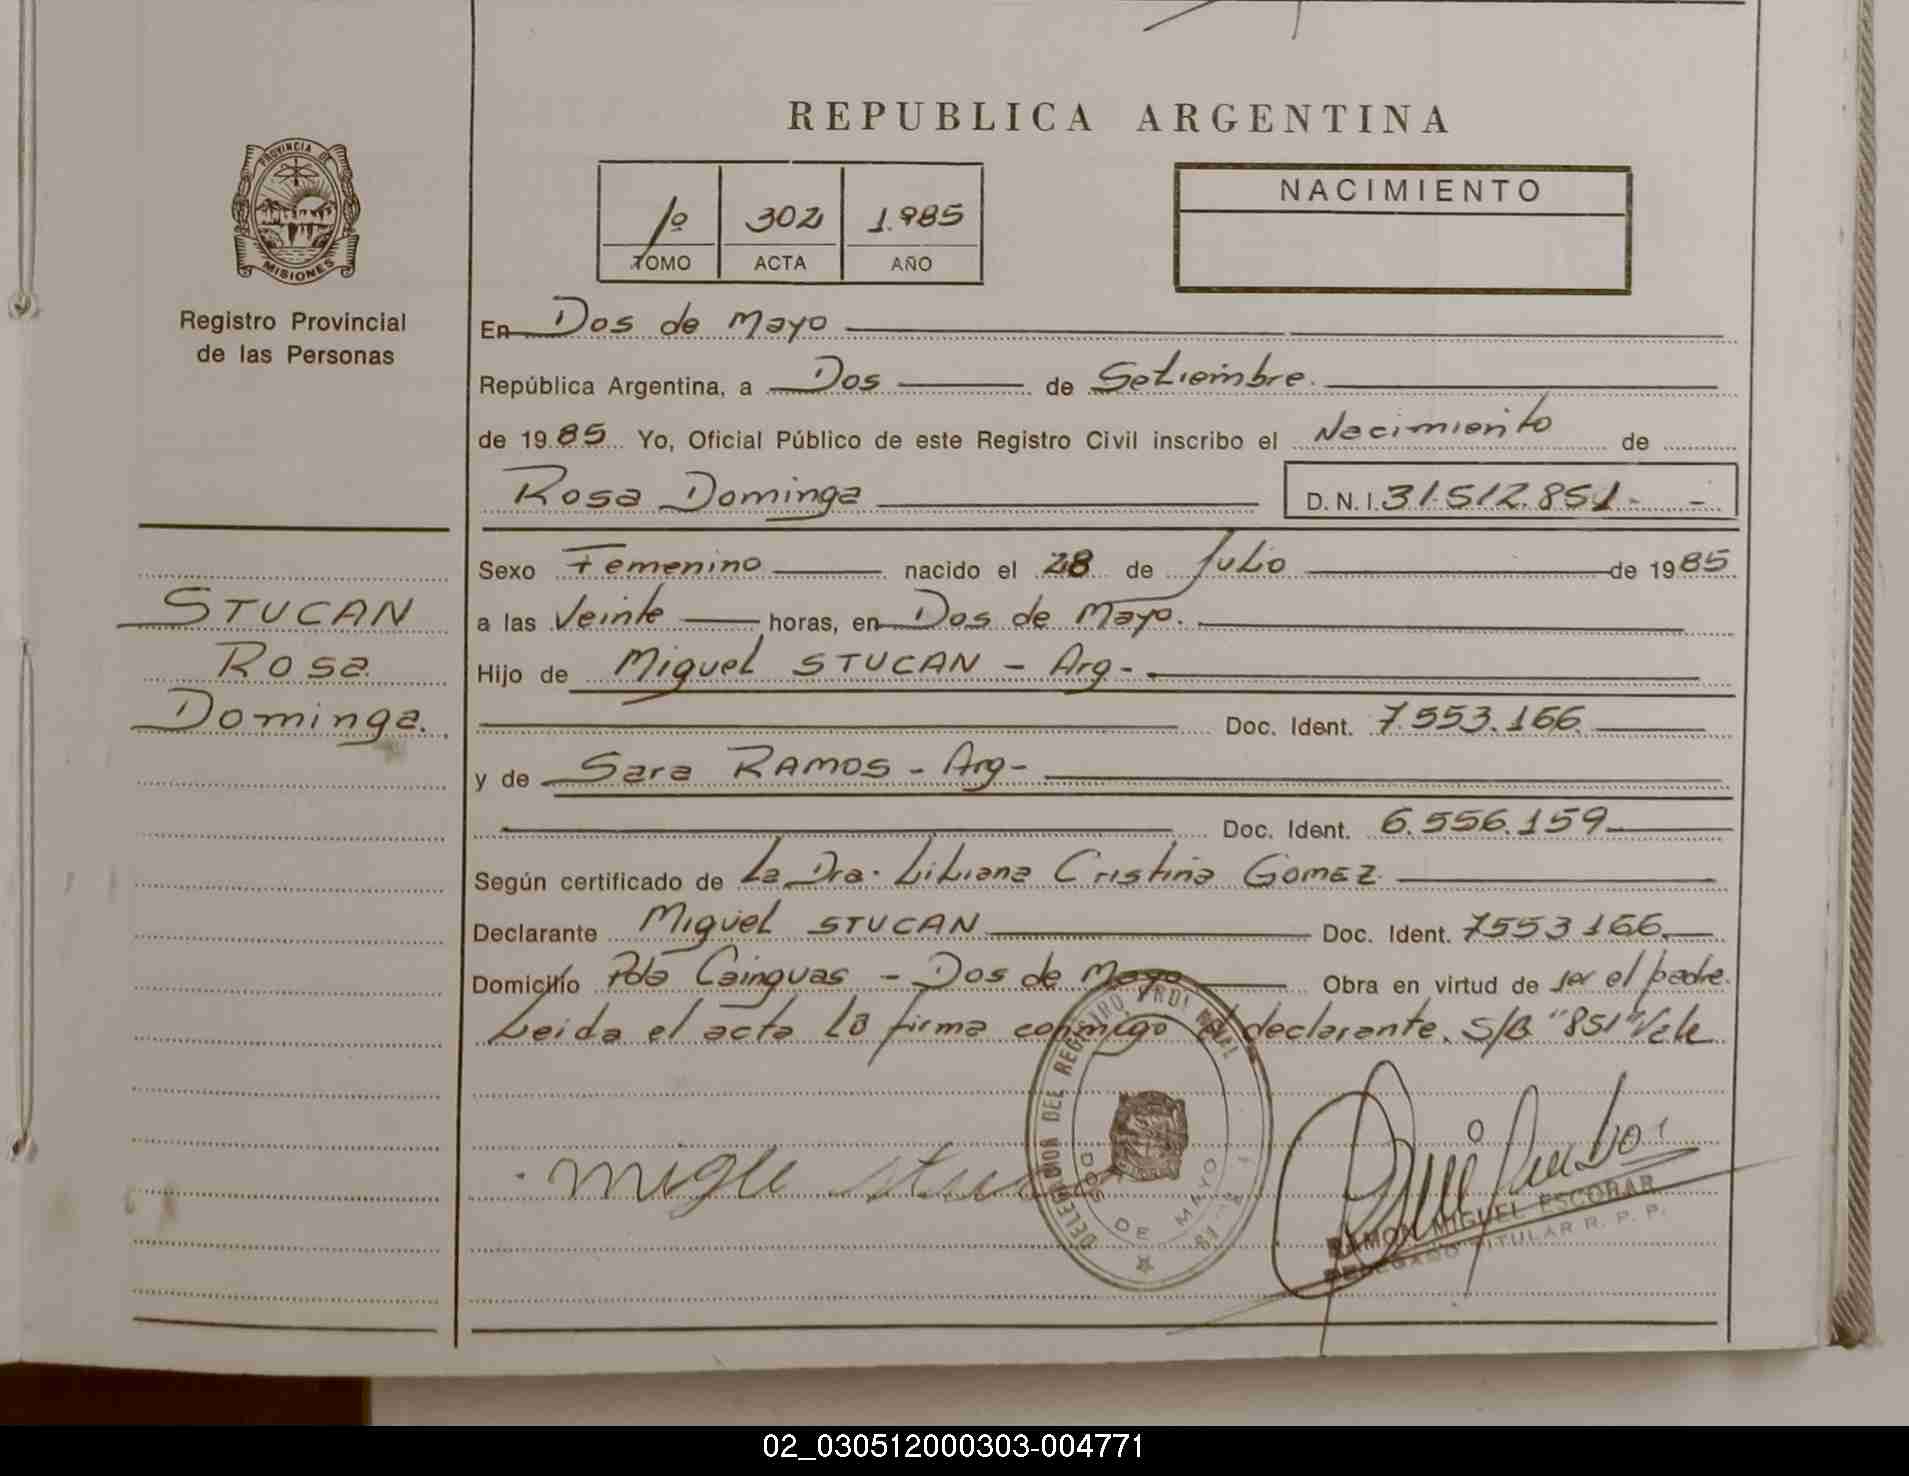 REPUBLICA ARGENTINA
PROVINCIA DE
MISIONES
Registro Provincial
de las Personas
1º 302 1.985
TOMO ACTA AÑO
NACIMIENTO
En Dos de Mayo
República Argentina, a Dos de Setiembre.
de 1985 Yo, Oficial Público de este Registro Civil inscribo el Nacimiento de
Rosa Dominga D.N.I. 31.512.851.- -
STUCAN
Rosa
Dominga.
Sexo Femenino nacido el 28 de Julio de 1985
a las Veinte horas, en Dos de Mayo.
Hijo de Miguel STUCAN - Arg-
Doc. Ident. 7.553.166.
y de Sara RAMOS - Arg-
Doc. Ident. 6.556.159
Según certificado de La Dra. Liliana Cristina GOMEZ.
Declarante Miguel STUCAN Doc. Ident. 7553166.
Domicilio Pda Cainguas - Dos de Mayo Obra en virtud de ser el padre.
Leida el acta la firma conmigo el declarante. S/B "851" Vale
DELEGACION DEL REGISTRO PROVINCIAL
DOS DE MAYO
migle stucan
RAMON MIGUEL ESCOBAR
DELEGADO TITULAR R. P. P.
02_030512000303-004771